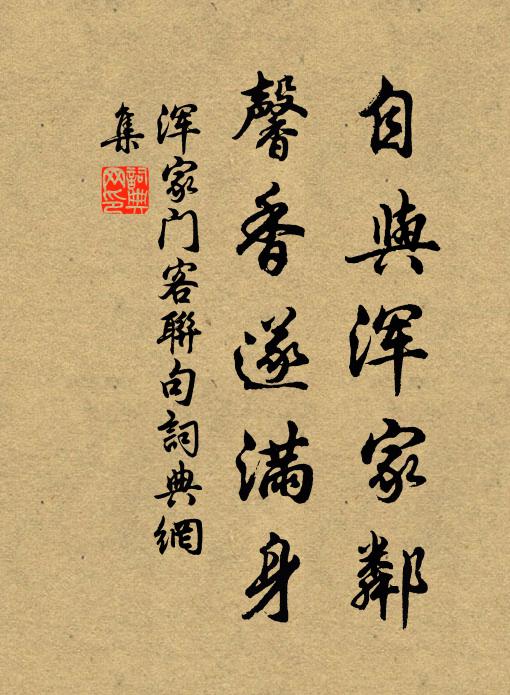 自與浑家鄰
馨香遂满身
浑家门客聯句詞典網
集
詞典网印